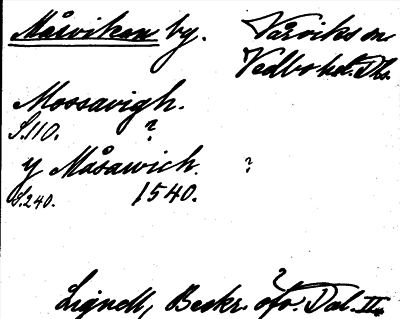 Måsvikan by. Vårviks sn.
Vedbo hd. Dls.
Mossavigh.
S.110. ?
y Måsawich. ?
S.240. 1540.
Lignell, Beskr. öfv. Dal. II.